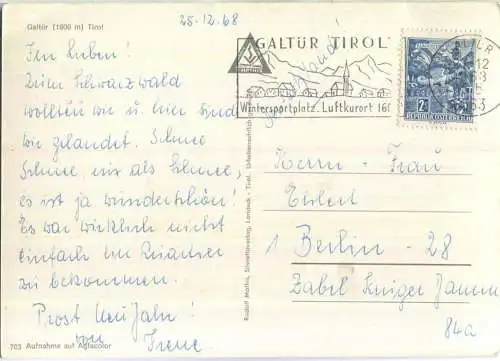 25.12.68
Galtür (1600 m) Tirol
GALTÜR TIROL
Wintersportplatz, Luftkurort 160
2S
REPUBLIK ÖSTERREICH
Ihr Lieben!
Zum Schwarzwald
wollten wir u. hier sind
wir gelandet. Schnee
Schnee nix als Schnee,
es ist ja wunderschön!
Es war wirklich nicht
einfach ein Quartier
zu bekommen.
Prost Neujahr!
von Irene
Herrn - Frau
1 Berlin - 28
Zabel Krüger Damm
84a
Rudolf Mathis, Silvrettaverlag, Landeck - Tirol.
703 Aufnahme auf Agfacolor